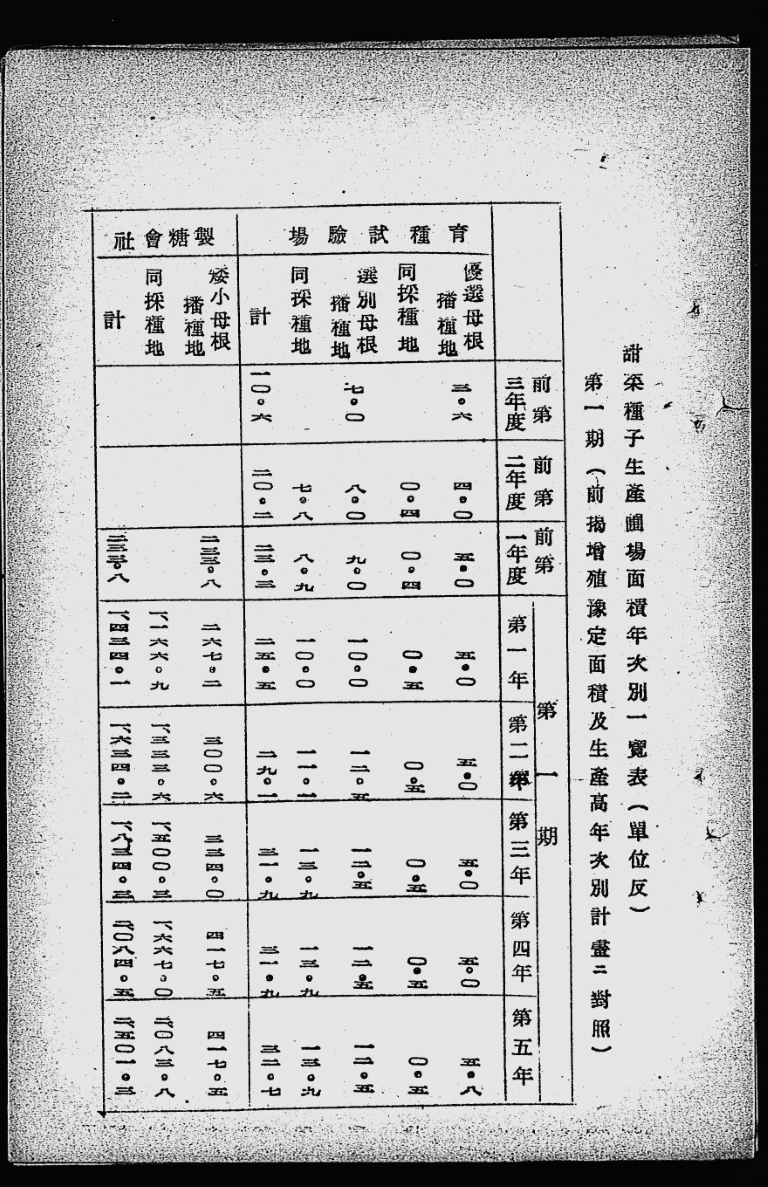 甜菜種子生產圃場面積年次別一覽表(單位反)
第一期(前揭增殖豫定面積及生產高年次別計畫ニ對照)
前第三年度
前第二年度
前第一年度
第一期
第一年
第二年
第三年
第四年
第五年
育種試驗場
優選母根播種地 三・六 四・〇 五・〇 五・〇 五・〇 五・〇 五・〇 五・八
同採種地 〇・四 〇・四 〇・五 〇・五 〇・五 〇・五 〇・五
選別母根播種地 七・〇 八・〇 九・〇 一〇・〇 一二・五 一二・五 一二・五 一二・五
同採種地 七・八 八・九 一〇・〇 一一・一 一三・九 一三・九 一三・九
計 一〇・六 二〇・二 二三・三 二五・五 二九・一 三一・九 三一・九 三二・七
製糖會社
矮小母根播種地 二三三・八 二六七・二 三〇〇・六 三三四・〇 四一七・五 四一七・五
同採種地 一、一六六・九 一、三三三・六 一、五〇〇・三 一、六六七・〇 二、〇八三・八
計 二三三・八 一、四三四・一 一、六三四・二 一、八三四・三 二、〇八四・五 二、五〇一・三